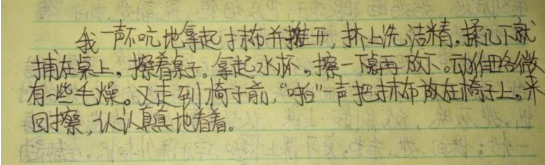 我一声不吭地拿起抹布并摊开，挤上洗洁精，揉几下就
捕在桌上，擦着桌子。拿起水杯，擦一下桌再放下。动作略微
有一些毛燥。又走到椅子前，“啪”一声把抹布放在椅子上，来
回擦，认认真真地看着。